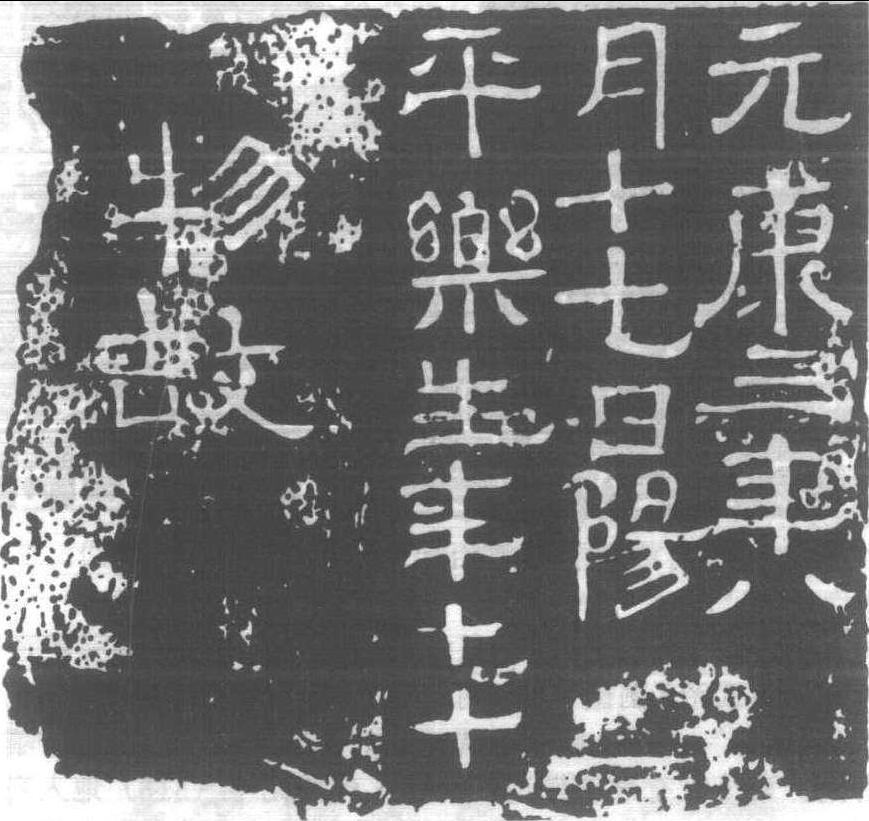 元康三年八
月十七日陽
平樂生年七十
物故